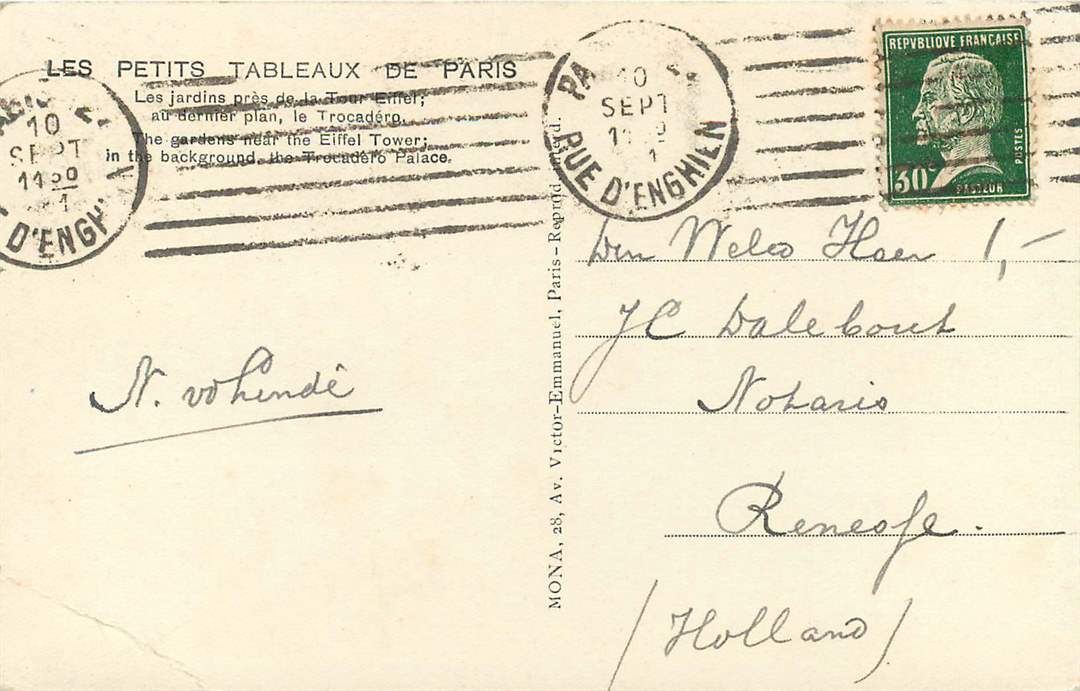 LES PETITS TABLEAUX DE PARIS
Les jardins près de la Tour Eiffel;
au dernier plan, le Trocadéro.
The gardens near the Eiffel Tower;
in the background, the Trocadero Palace.
10
SEPT
D'ENGH
PA
10
SEPT
RUE D'ENGHIEN
REPVBLIQVE FRANÇAISE
POSTES
30c
PASTEUR
MONA, 28, Av. Victor-Emmanuel, Paris - Reprod. interd.
N.
Den Heer
JC Dalebout
Notaris
Renesse.
(Holland)